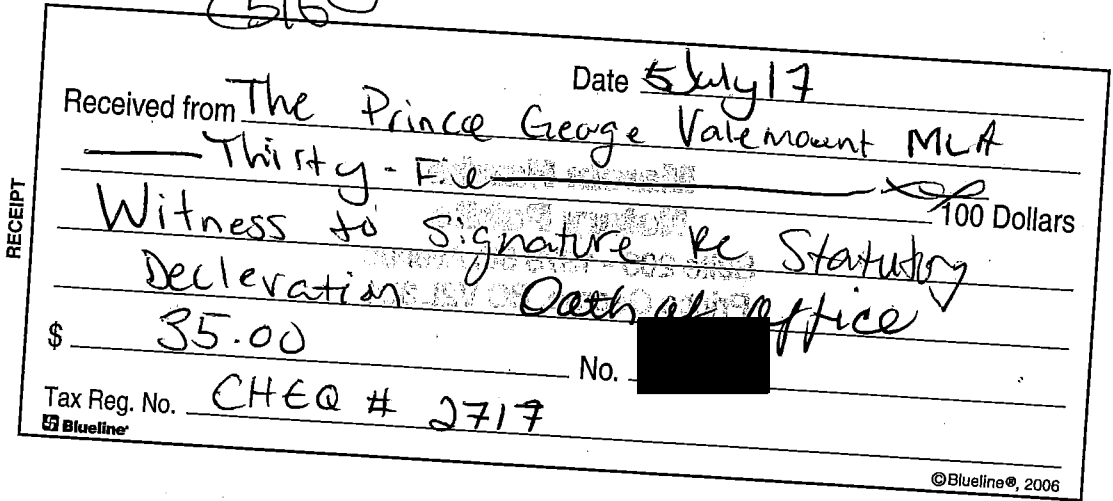 516
Date 5 July 17
Received from The Prince George Valemount MLA
Thirty-Five 100 Dollars
Witness to Signature Re Statutory
Decleration Oath of Office
$ 35.00 No.
Tax Reg. No. CHEQ # 2717
Blueline
©Blueline®, 2006
RECEIPT